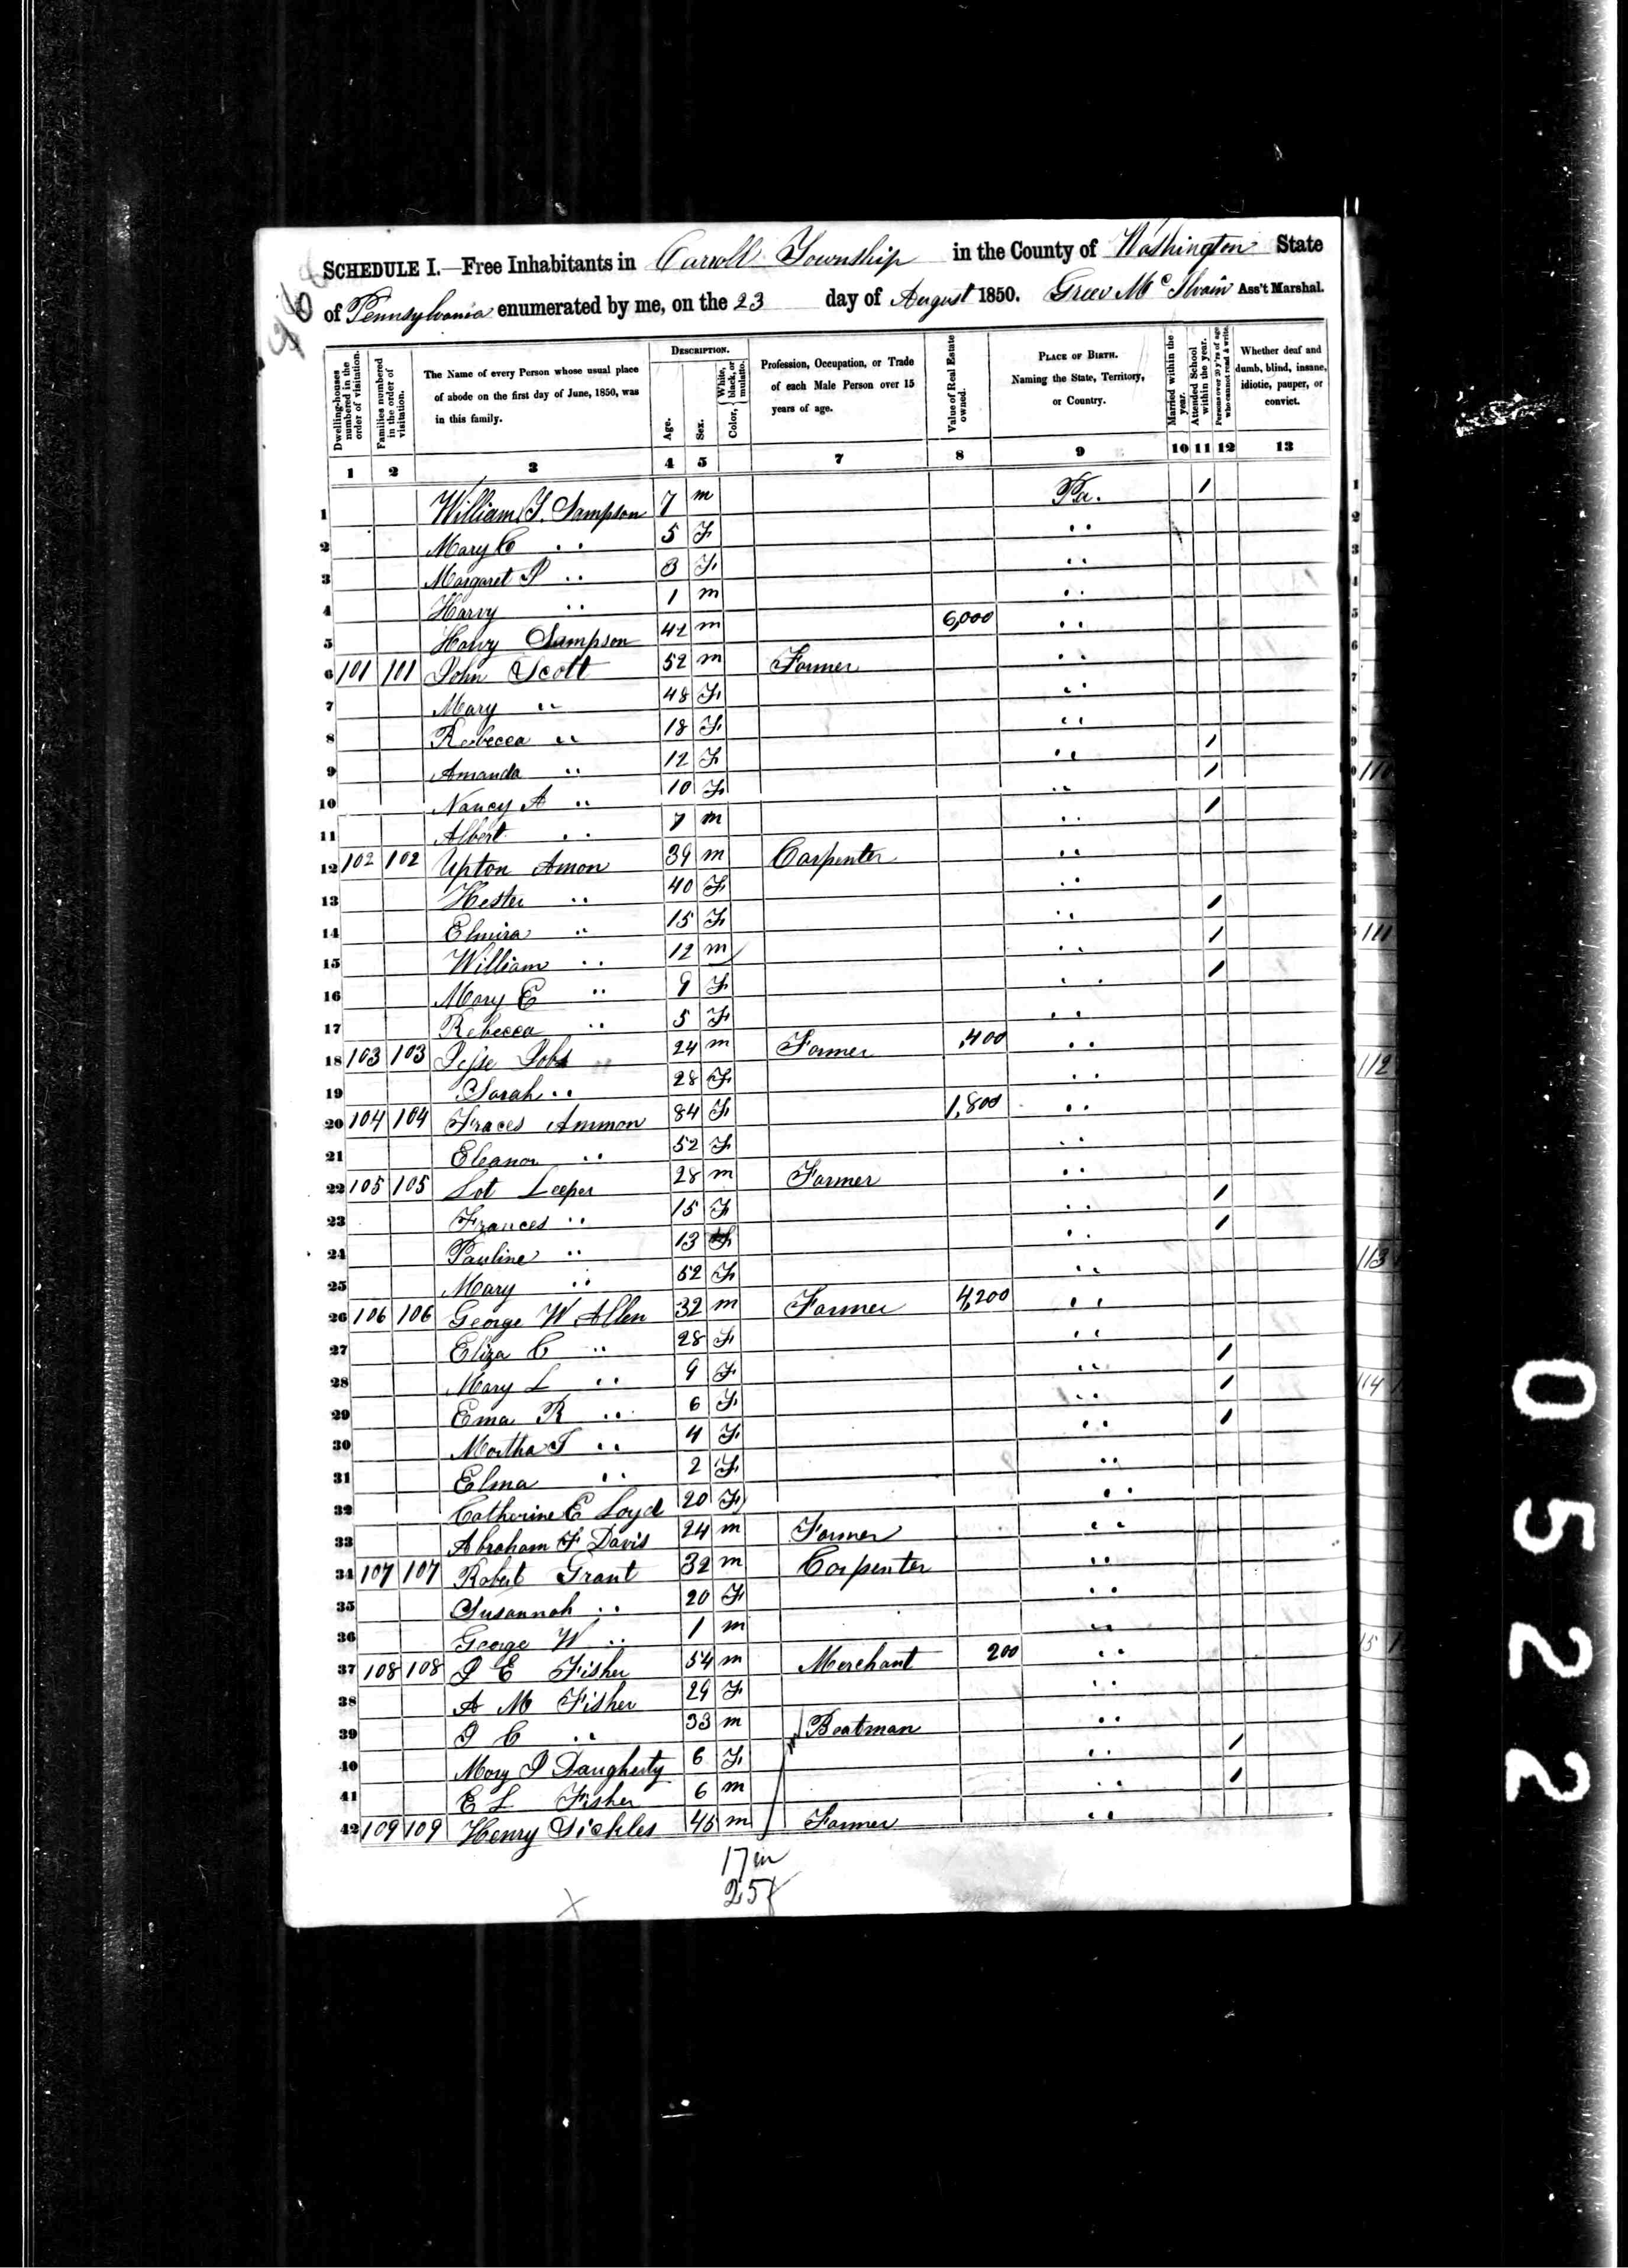 SCHEDULE I.—Free Inhabitants in Carroll Township in the County of Washington State
of Pennsylvania enumerated by me, on the 23 day of August 1850. Greer McIlvain Ass't Marshal.
Dwelling-houses numbered in the order of visitation.
Families numbered in the order of visitation.
The Name of every Person whose usual place of abode on the first day of June, 1850, was in this family.
DESCRIPTION.
Age.
Sex.
Color, { White, black, or mulatto.
Profession, Occupation, or Trade of each Male Person over 15 years of age.
Value of Real Estate owned.
PLACE OF BIRTH. Naming the State, Territory, or Country.
Married within the year.
Attended School within the year.
Persons over 20 y'rs of age who cannot read & write.
Whether deaf and dumb, blind, insane, idiotic, pauper, or convict.
1 2 3 4 5 7 8 9 10 11 12 13
1 William J. Sampson 7 m Pa. /
2 Mary C " 5 F "
3 Margaret P " 3 F "
4 Harvy " 1 m "
5 Harvy Sampson 42 m 6,000 "
6 101 101 John Scott 52 m Farmer "
7 Mary " 48 F "
8 Rebecca " 18 F "
9 Amanda " 12 F " /
10 Nancy A " 10 F " /
11 Albert " 7 m " /
12 102 102 Upton Amon 39 m Carpenter "
13 Hester " 40 F "
14 Elmira " 15 F " /
15 William " 12 m " /
16 Mary E " 9 F " /
17 Rebecca " 5 F "
18 103 103 Jesse Jobs 24 m Farmer ,400 "
19 Sarah " 28 F "
20 104 104 Fraces Ammon 84 F 1,800 "
21 Eleanor " 52 F "
22 105 105 Lot Leeper 28 m Farmer "
23 Frances " 15 F " /
24 Pauline " 13 F " /
25 Mary " 52 F "
26 106 106 George W Allen 32 m Farmer 4,200 "
27 Eliza C " 28 F "
28 Mary L " 9 F " /
29 Ema R " 6 F " /
30 Martha J " 4 F " /
31 Elma " 2 F "
32 Catherine E Loyd 20 F "
33 Abraham F Davis 24 m Farmer "
34 107 107 Robert Grant 32 m Carpenter "
35 Susannah " 20 F "
36 George W " 1 m "
37 108 108 J E Fisher 54 m Merchant 200 "
38 A M Fisher 29 F "
39 J C " 33 m Boatman "
40 Mary J Daugherty 6 F " /
41 E L Fisher 6 m " /
42 109 109 Henry Sickles 45 m Farmer "
17 m
25 f
110
111
112
113
114
0522